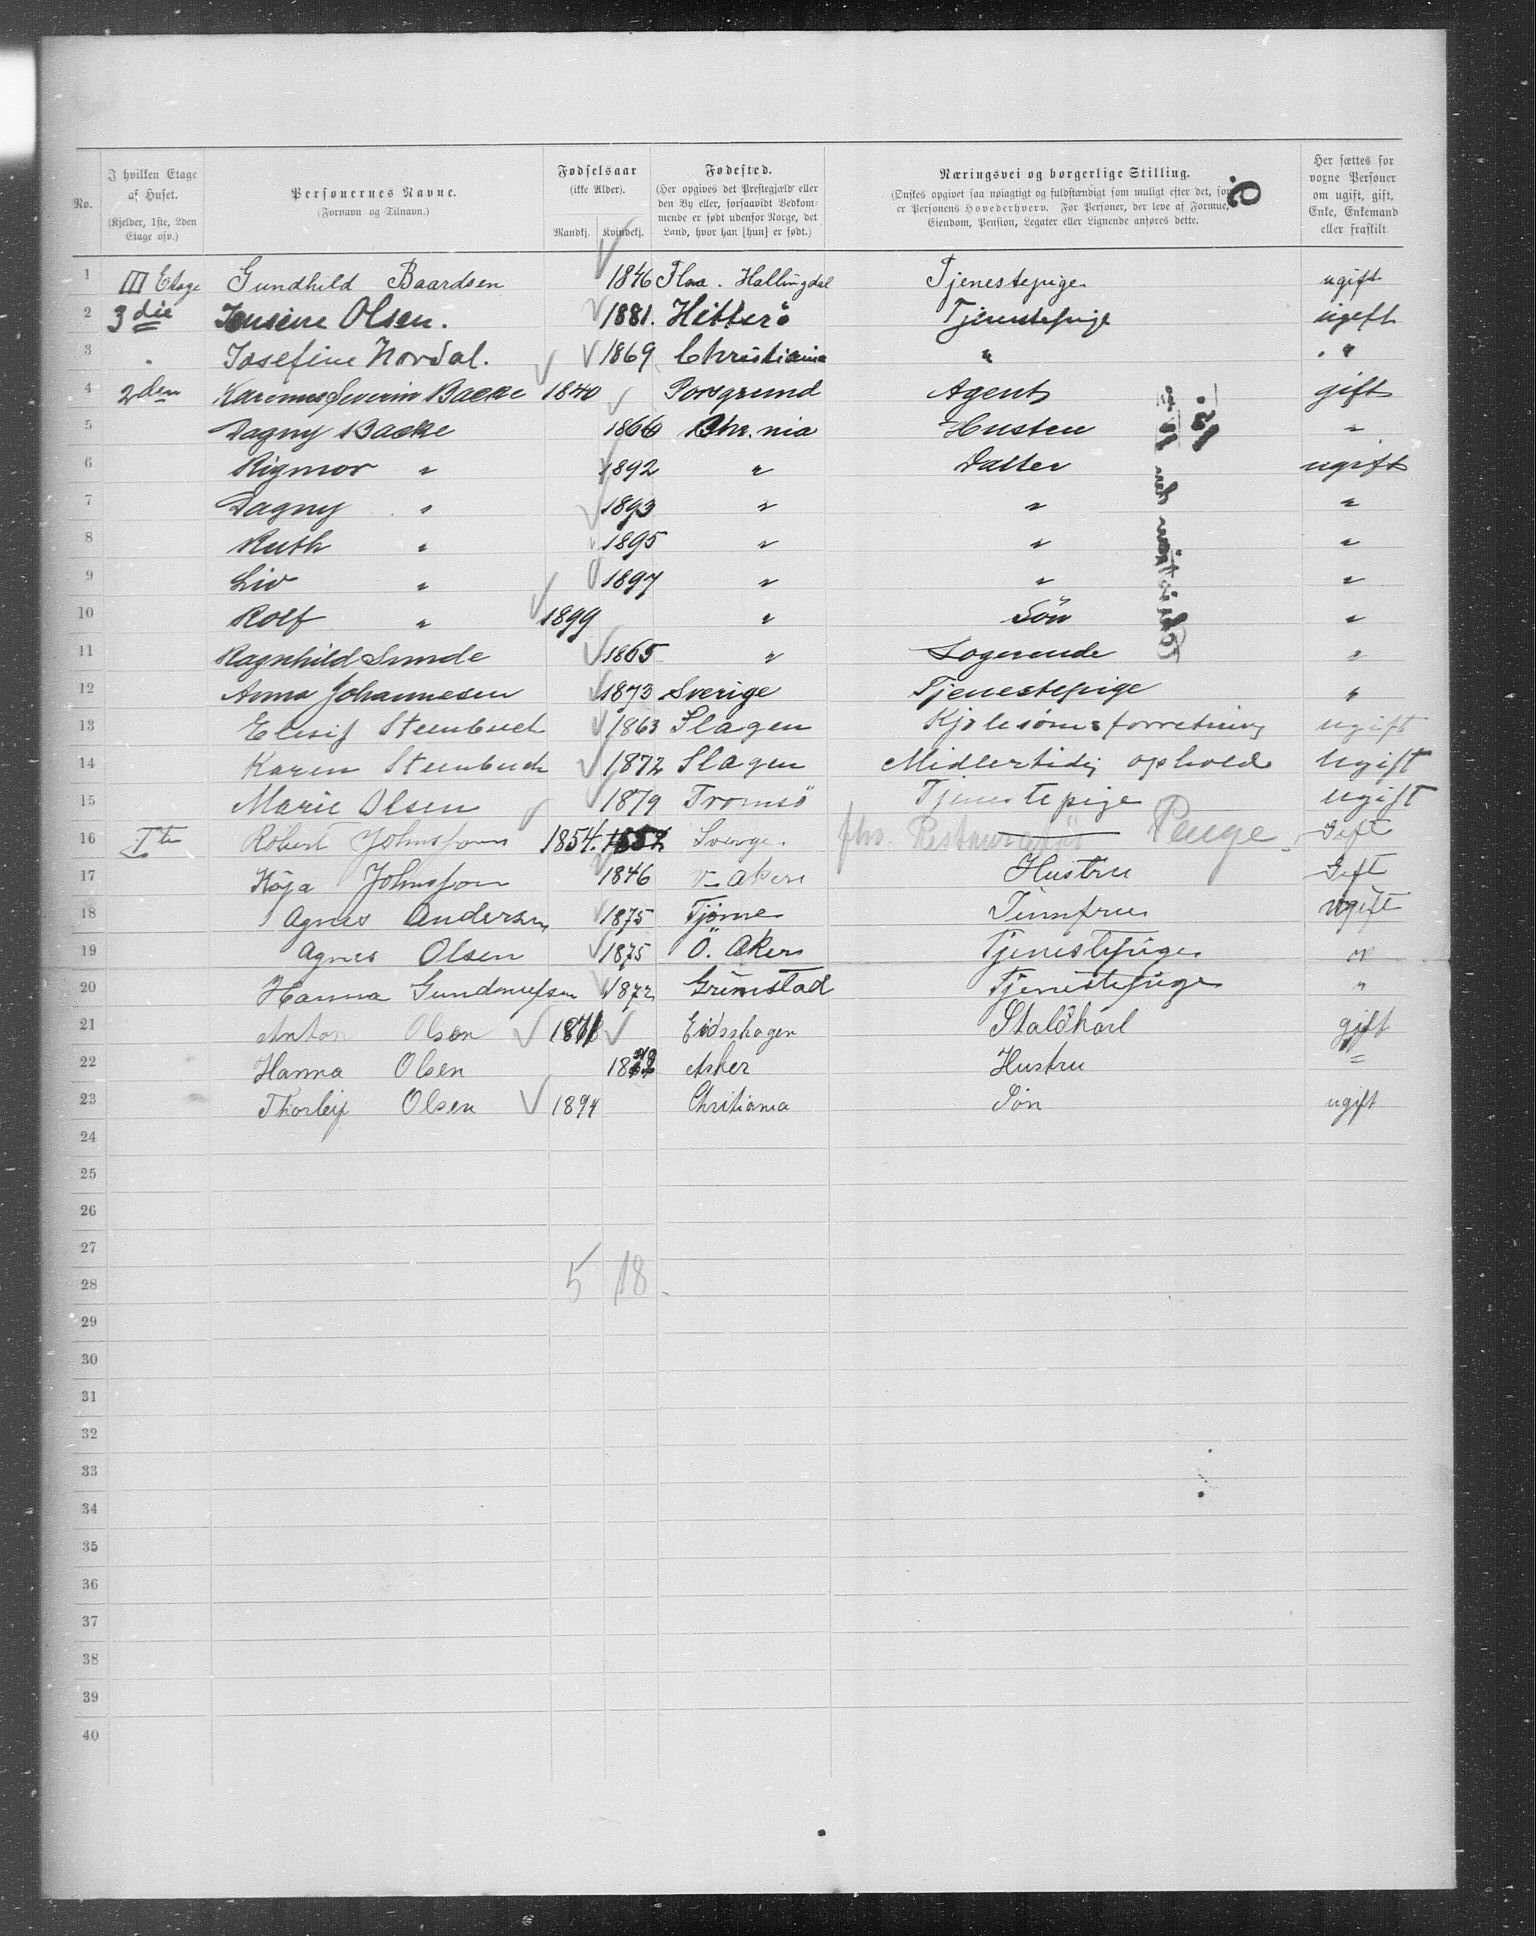 No. | I hvilken Etage af Huset. (Kjelder, 1ste, 2den Etage osv.) | Personernes Navne. (Fornavn og Tilnavn.) | Fødselsaar (ikke Alder). Mandkj. Kvindekj. | Fødested. (Her opgives det Prestegjæld eller den By eller, forsaavidt Vedkommende er født udenfor Norge, det Land, hvor han [hun] er født.) | Næringsvei og borgerlige Stilling. (Ønskes opgivet saa nøiagtigt og fuldstændigt som muligt efter det, som er Personens Hovederhverv. For Personer, der leve af Formue, Eiendom, Pension, Legater eller Lignende anføres dette. | Her sættes for voxne Personer om ugift, gift, Enke, Enkemand eller fraskilt.
1 III Etage Gundhild Baardsen 1846 Flaa. Hallingdal Tjenestepige ugift
2 3die Jensine Olsen. 1881. Hitterö Tjenestepige ugift
3 " Josefine Nordal. 1869 Christiania " "
4 2den Severin Backe 1840 Porsgrund Agent gift
5 Dagny Backe 1866 Chr.nia Hustru "
6 Rigmor " 1892 " Datter ugift
7 Dagny " 1893 " " "
8 Ruth " 1895 " " "
9 Liv " 1897 " " "
10 Rolf " 1899 " Sön "
11 Ragnhild Sunde 1865 " Logerende "
12 Anna Johannesen 1873 Sverige Tjenestepige "
13 Elisif Steenbuch 1863 Slagen Kjolesømsforretning ugift
14 Karen Steenbuch 1872 Slagen Midlertidig ophold Ugift
15 Marie Olsen 1879 Tromsö Tjenestepige ugift
16 1te Robert Johnsson 1854. Sverge. fhv. Restauratör Penge Gift
17 Kaja Johnsson 1846 V- Akers Hustru Gift
18 Agnes Andersen 1875 Tjøme Jumfru ugift
19 Agnes Olsen 1875 Ö. Akers Tjenestepige "
20 Hanna Gundersen 1872 Grimstad Tjenestepige "
21 Anton Olsen 1871 Eidsskogen Staldkarl gift
22 Hanna Olsen 18 Asker Hustru "
23 Thorleif Olsen 1894 Chritiania Sön ugift
24
25
26
27
28 5 18
29
30
31
32
33
34
35
36
37
38
39
40